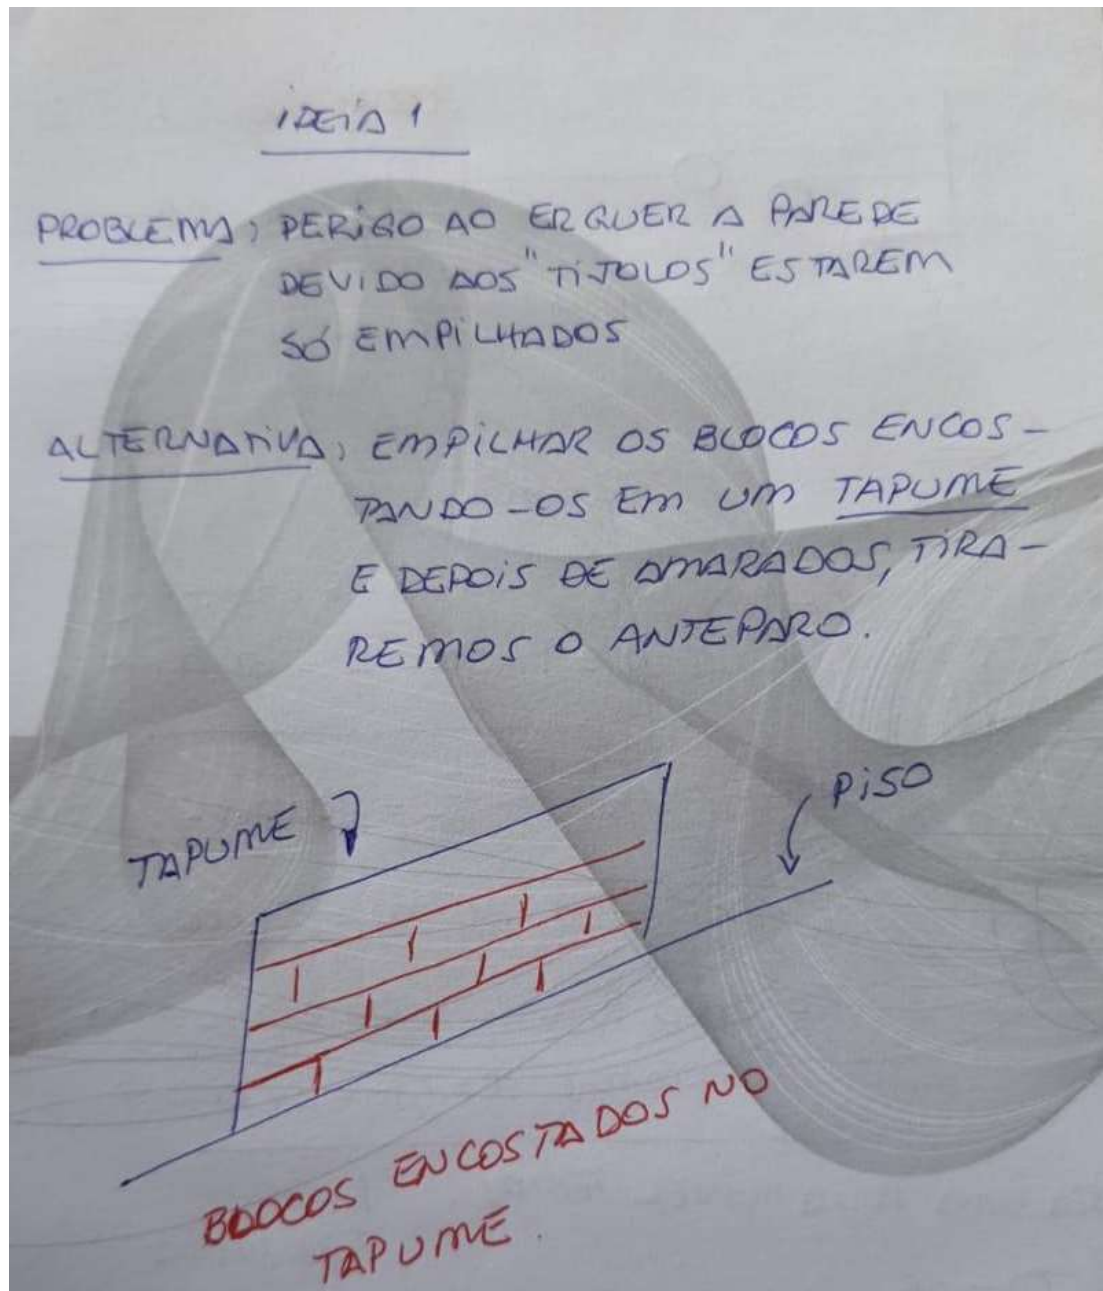 IDEIA 1
PROBLEMA: PERIGO AO ERGUER A PAREDE
DEVIDO AOS "TIJOLOS" ESTAREM
SÓ EMPILHADOS
ALTERNATIVA: EMPILHAR OS BLOCOS ENCOS-
TANDO-OS EM UM TAPUME
E DEPOIS DE AMARADOS, TIRA-
REMOS O ANTEPARO.
PISO
TAPUME
BLOCOS ENCOSTADOS NO
TAPUME.